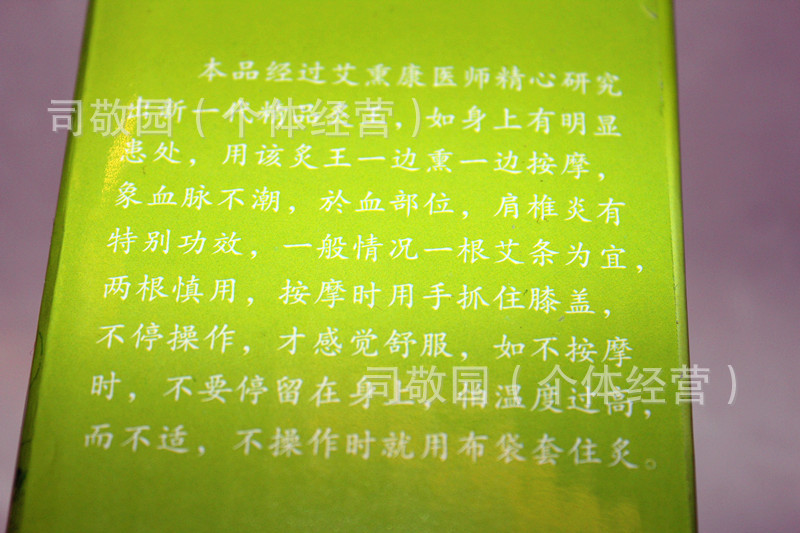 本品经过艾熏康医师精心研究
出新一代精品灸王，如身上有明显
患处，用该炙王一边熏一边按摩，
象血脉不潮，於血部位，肩椎炎有
特别功效，一般情况一根艾条为宜，
两根慎用，按摩时用手抓住膝盖，
不停操作，才感觉舒服，如不按摩
时，不要停留在身上，温度过高，
而不适，不操作时就用布袋套住炙。
司敬园（个体经营）
司敬园（个体经营）